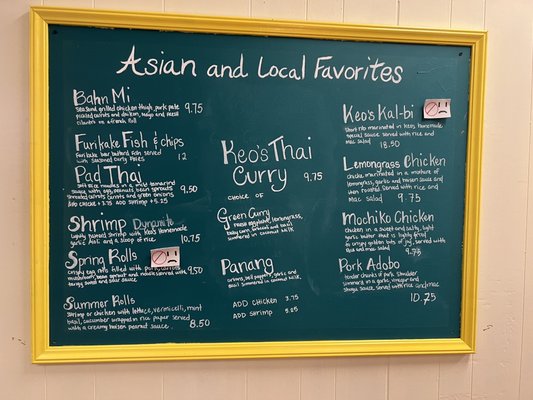 Asian and Local Favorites
Bahn Mi
seasoned grilled chicken thigh, pork pate 9.75
pickled carrots and daikon, mayo and fresh
cilantro on a french roll
Furikake Fish & chips
furikake
seasonal curly fries 12
Pad Thai
soft rice noodles in a mild tamarind
sauce with egg, peanuts, bean sprouts 9.50
shredded carrots and green onions
Add chicken + 3.25 Add shrimp + 5.25
Shrimp Dynamite
lightly panned shrimp with Keo's homemade
garlic aioli and a scoop of rice 10.75
Spring Rolls
crispy egg rolls filled with pork, carrots
mushroom, bean sprout and noodle served with 9.50
tangy sweet and sour sauce
Summer Rolls
shrimp or chicken with lettuce, vermicelli, mint
basil, cucumber wrapped in rice paper served
with a creamy hoisen peanut sauce. 8.50
Keo's Thai
Curry 9.75
choice of
Green Curry
eggplant, lemongrass,
baby corn, broccoli and basil
simmered in coconut milk
Panang
onions, bell peppers, garlic and
basil simmered in coconut milk
Add chicken 3.75
Add shrimp 5.25
Keo's Kal-bi
Short rib marinated in keos homemade
special sauce served with rice and
mac salad
18.50
Lemongrass Chicken
chicken marinated in a mixture of
lemongrass, garlic and hoisen sauce and
then roasted served with rice and
mac salad 9.75
Mochiko Chicken
chicken in a sweet and salty, light
garlic batter that is lightly fried
to crispy golden bits of joy, served with
rice and mac salad 9.75
Pork Adobo
tender chunks of pork shoulder
simmered in a garlic, vinegar and
shoyu sauce. Served with rice and
10.75